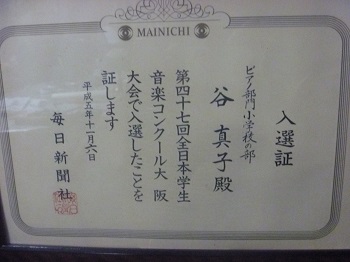 MAINICHI
入選証
ピアノ部門小学校の部
谷真子殿
第四十七回全日本学生
音楽コンクール大阪
大会で入選したことを
証します
平成五年十一月六日
毎日新聞社